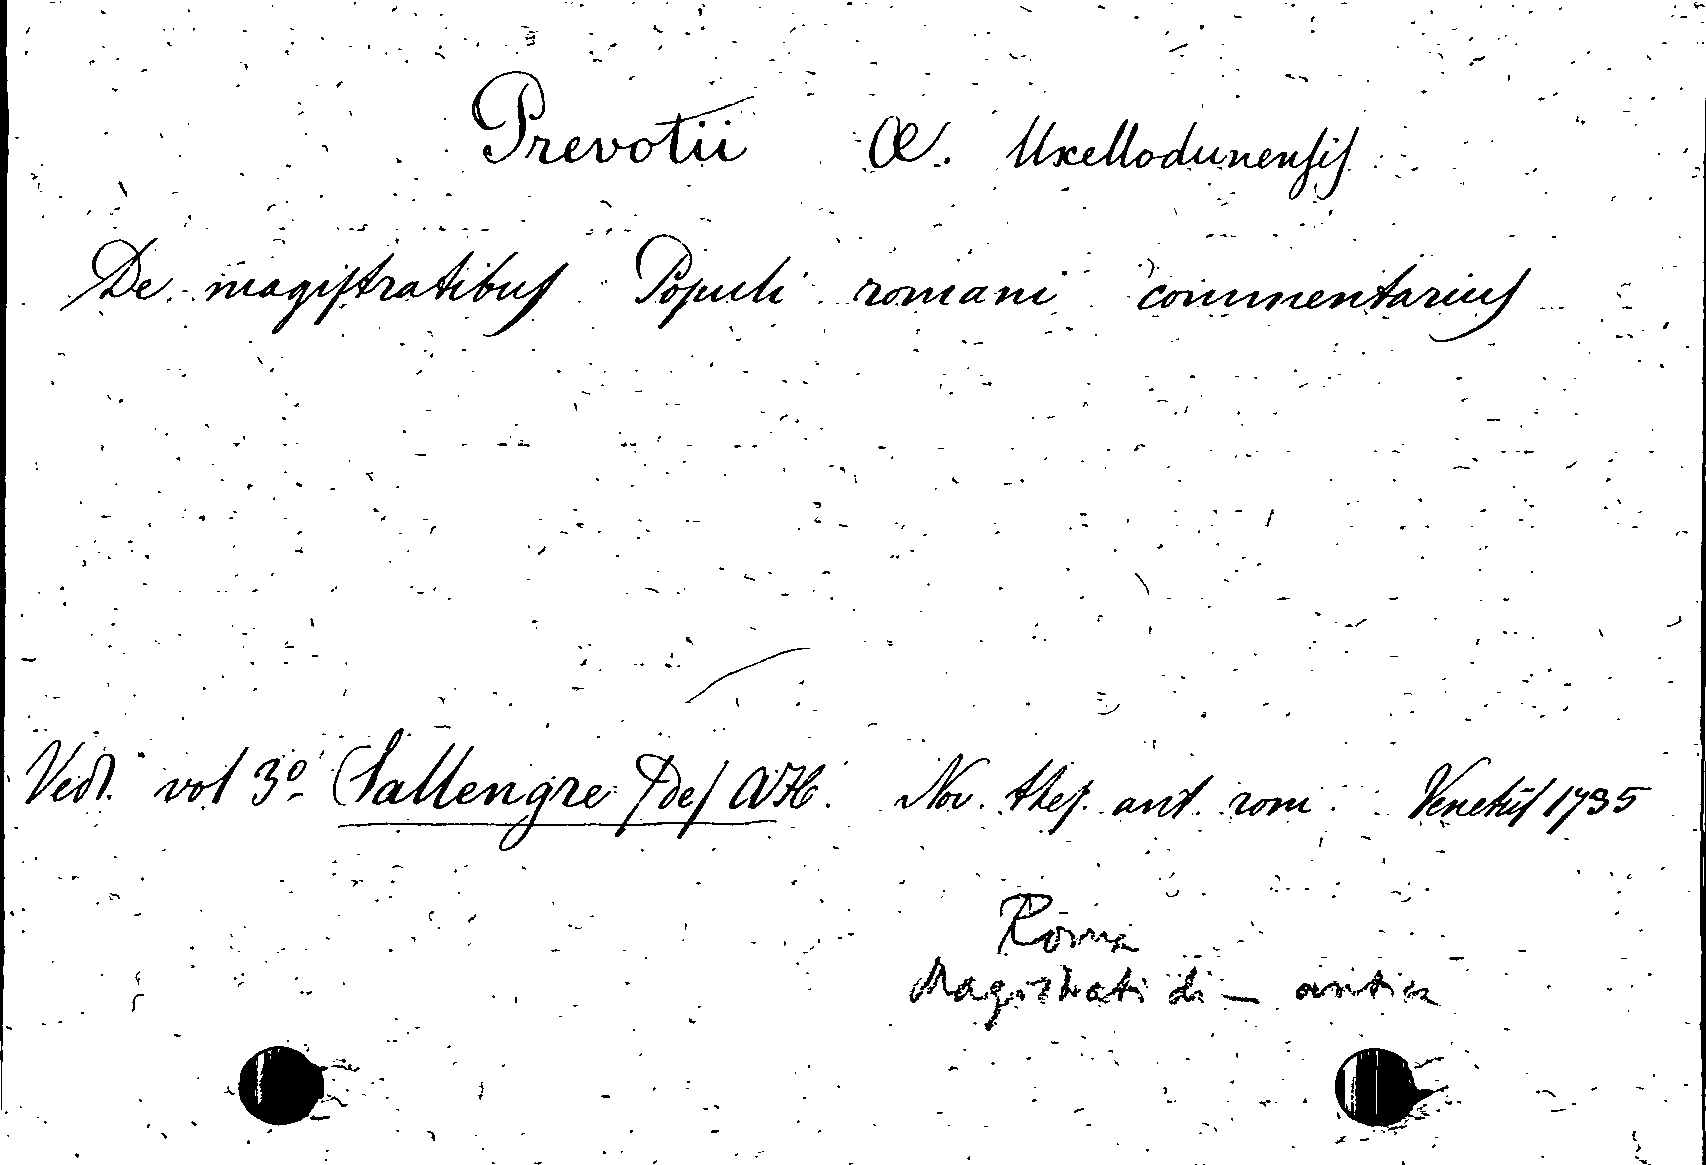 Prevotii Œ. Uxellodunensis
De magistratibus Populi romani commentarius
Ved. vol 3º Sallengre (de) A. H. Nov. thes. ant. rom. Venetiis 1735
Roma
Magistrati di — antica